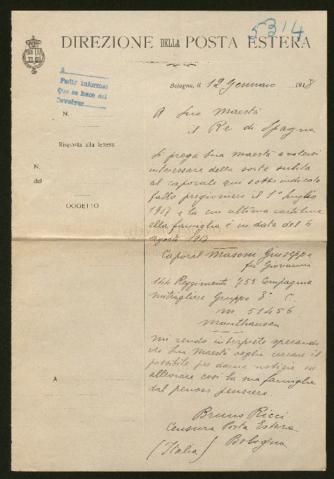 5314
DIREZIONE DELLA POSTA ESTERA
A
Pedir informes
que se hace del
Devolver
Bologna, il 12 Gennaio 1918
N.
A Sua Maestà
il Re di Spagna
Risposta alla lettera
N.
del
OGGETTO
Si prega Sua Maestà a volersi
interessare della sorte subita
al caporale qui sotto indicato
fatto prigioniero il 1° luglio
1917 e la cui ultima cartolina
alla famiglia è in data del 4
agosto 1917
Caporal Masoni Giuseppe
fu Giovanni
144 Reggimento 753 Compagnia
mitragliere Gruppo 8° C.
m 51456
Mauthausen
Mi rendo interprete sperando
che Sua Maestà voglia cercare il
possibile per darne notizie ed
alleviare così la sua famiglia
dal penoso pensiero
A
Bruno Ricci
Censura Posta Estera
Bologna
(Italia)